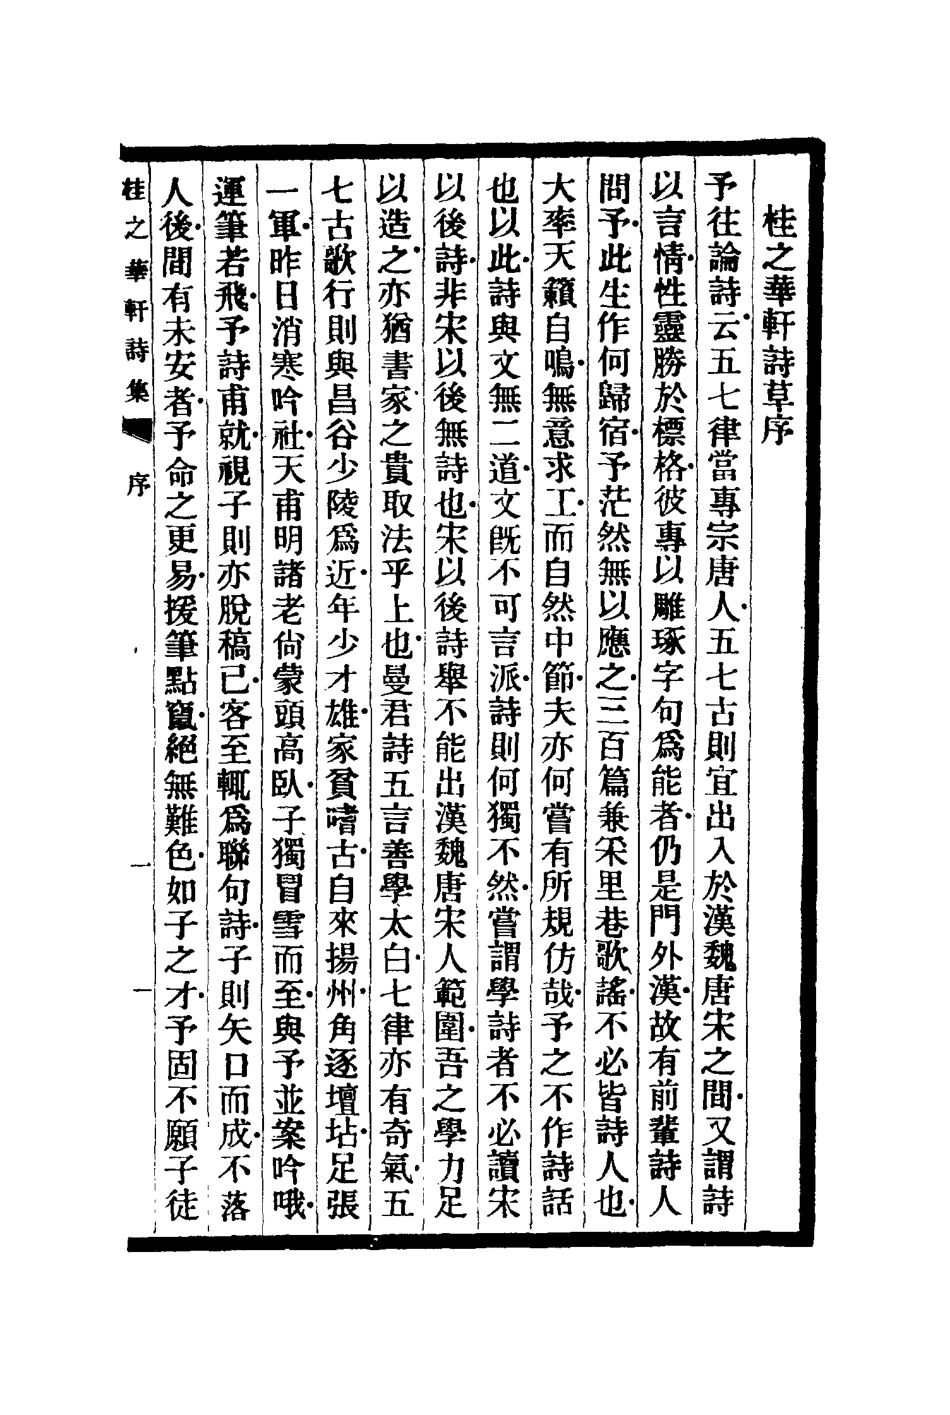 桂之華軒詩草序
予往論詩云五七律當專宗唐人五七古則宜出入於漢魏唐宋之間又謂詩
以言情性靈勝於標格彼專以雕琢字句爲能者仍是門外漢故有前輩詩人
問予此生作何歸宿予茫然無以應之三百篇兼采里巷歌謠不必皆詩人也
大率天籟自鳴無意求工而自然中節夫亦何嘗有所規仿哉予之不作詩話
也以此詩與文無二道文既不可言派詩則何獨不然嘗謂學詩者不必讀宋
以後詩非宋以後無詩也宋以後詩舉不能出漢魏唐宋人範圍吾之學力足
以造之亦猶書家之貴取法乎上也曼君詩五言善學太白七律亦有奇氣五
七古歌行則與昌谷少陵爲近年少才雄家貧嗜古自來揚州角逐壇坫足張
一軍昨日消寒吟社天甫明諸老尙蒙頭高臥子獨冒雪而至與予並案吟哦
運筆若飛予詩甫就視子則亦脫稿已客至輒爲聯句詩子則矢口而成不落
人後間有未安者予命之更易援筆點竄絕無難色如子之才予固不願子徒
桂之華軒詩集 序 一 一